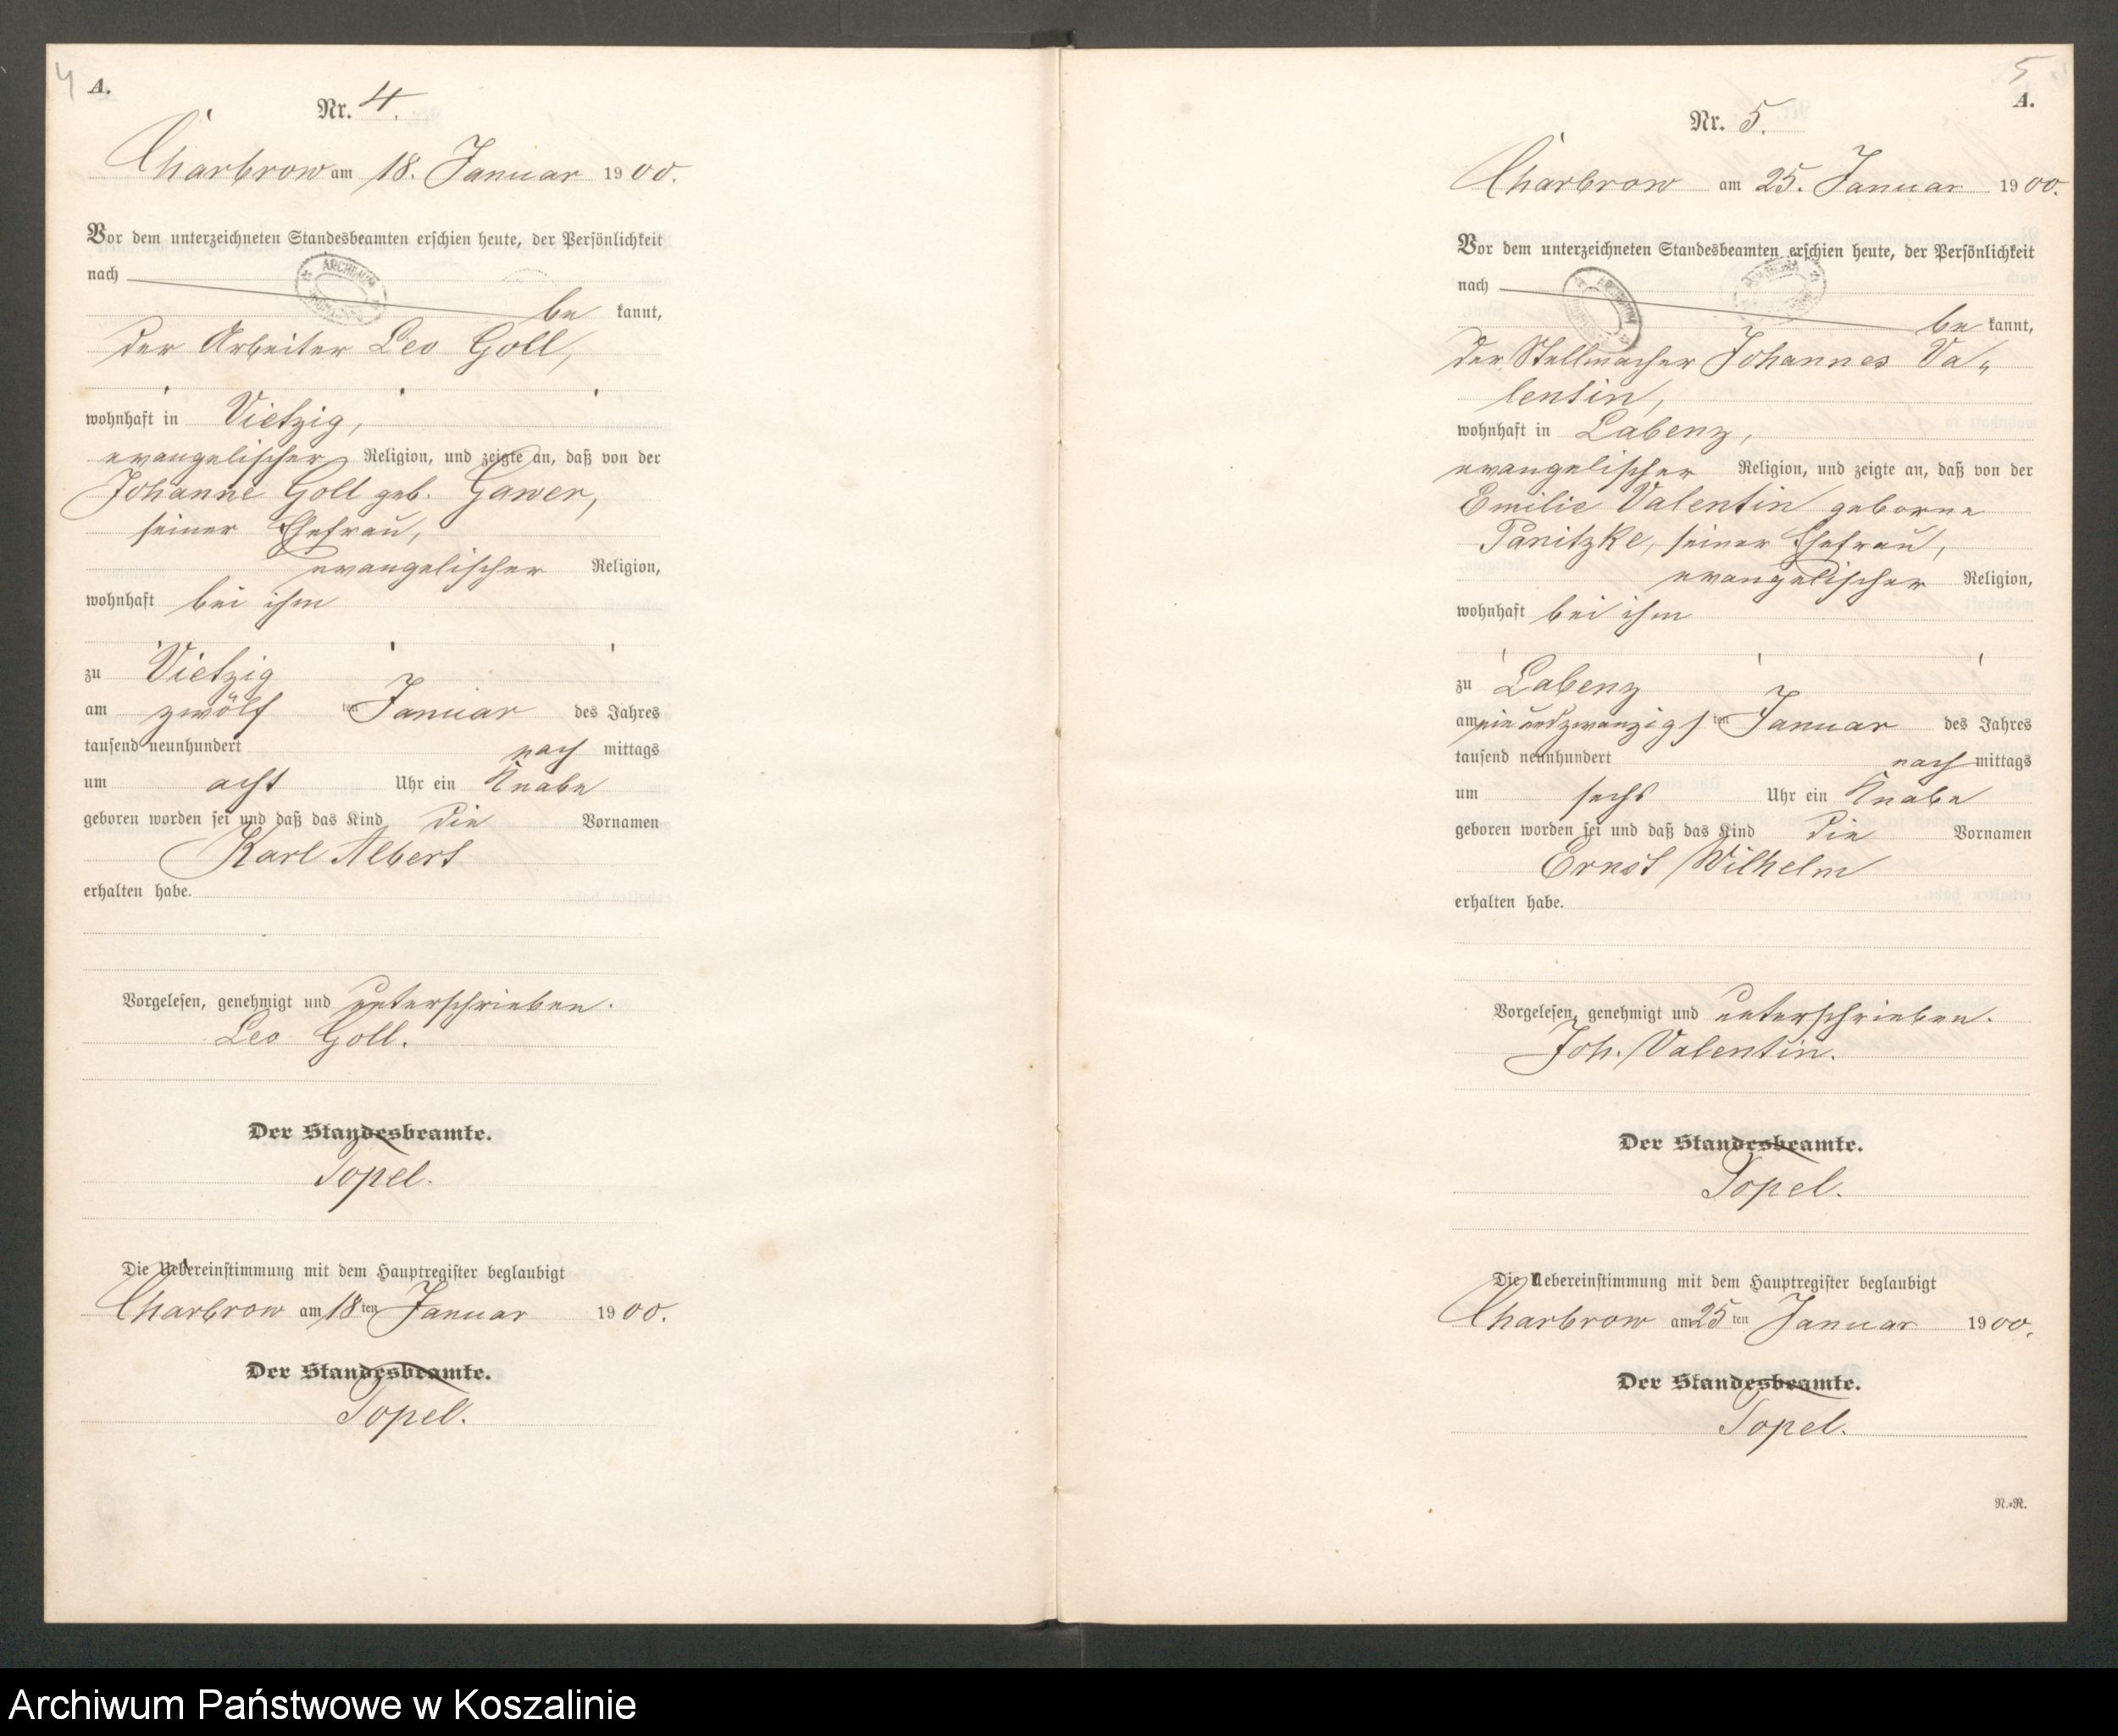 4
A.
Nr. 4.
Charbrow am 18. Januar 1900.
Vor dem unterzeichneten Standesbeamten erschien heute, der Persönlichkeit
nach
be kannt,
der Arbeiter Leo Goll,
wohnhaft in Vietzig,
evangelischer Religion, und zeigte an, daß von der
Johanne Goll geb. Gawer,
seiner Ehefrau,
evangelischer Religion,
wohnhaft bei ihm
zu Vietzig
am zwölf ten Januar des Jahres
tausend neunhundert nach mittags
um acht Uhr ein Knabe
geboren worden sei und daß das Kind die Vornamen
Karl Albert
erhalten habe.
Vorgelesen, genehmigt und unterschrieben.
Leo Goll.
Der Standesbeamte.
Topel.
Die Uebereinstimmung mit dem Hauptregister beglaubigt
Charbrow am 18ten Januar 1900.
Der Standesbeamte.
Topel.
5
A.
Nr. 5.
Charbrow am 25. Januar 1900.
Vor dem unterzeichneten Standesbeamten erschien heute, der Persönlichkeit
nach
be kannt,
der Stellmacher Johannes Va„
lentin,
wohnhaft in Labenz,
evangelischer Religion, und zeigte an, daß von der
Emilie Valentin geborne
Panitzke, seiner Ehefrau,
evangelischer Religion,
wohnhaft bei ihm
zu Labenz
am einundzwanzigsten Januar des Jahres
tausend neunhundert nach mittags
um sechs Uhr ein Knabe
geboren worden sei und daß das Kind die Vornamen
Ernst Wilhelm
erhalten habe.
Vorgelesen, genehmigt und unterschrieben.
Joh. Valentin.
Der Standesbeamte.
Topel.
Die Uebereinstimmung mit dem Hauptregister beglaubigt
Charbrow am 25ten Januar 1900.
Der Standesbeamte.
Topel.
N.=R.
Archiwum Państwowe w Koszalinie